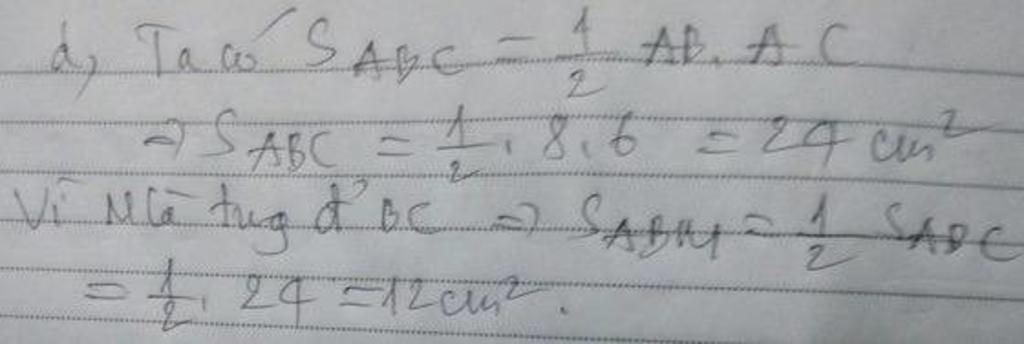 d, Ta có S ABC = 1/2 AB. AC
=> S ABC = 1/2 . 8.6 = 24 cm²
Vì M là tug đ' BC => S ABM = 1/2 S ABC
= 1/2 . 24 = 12cm².